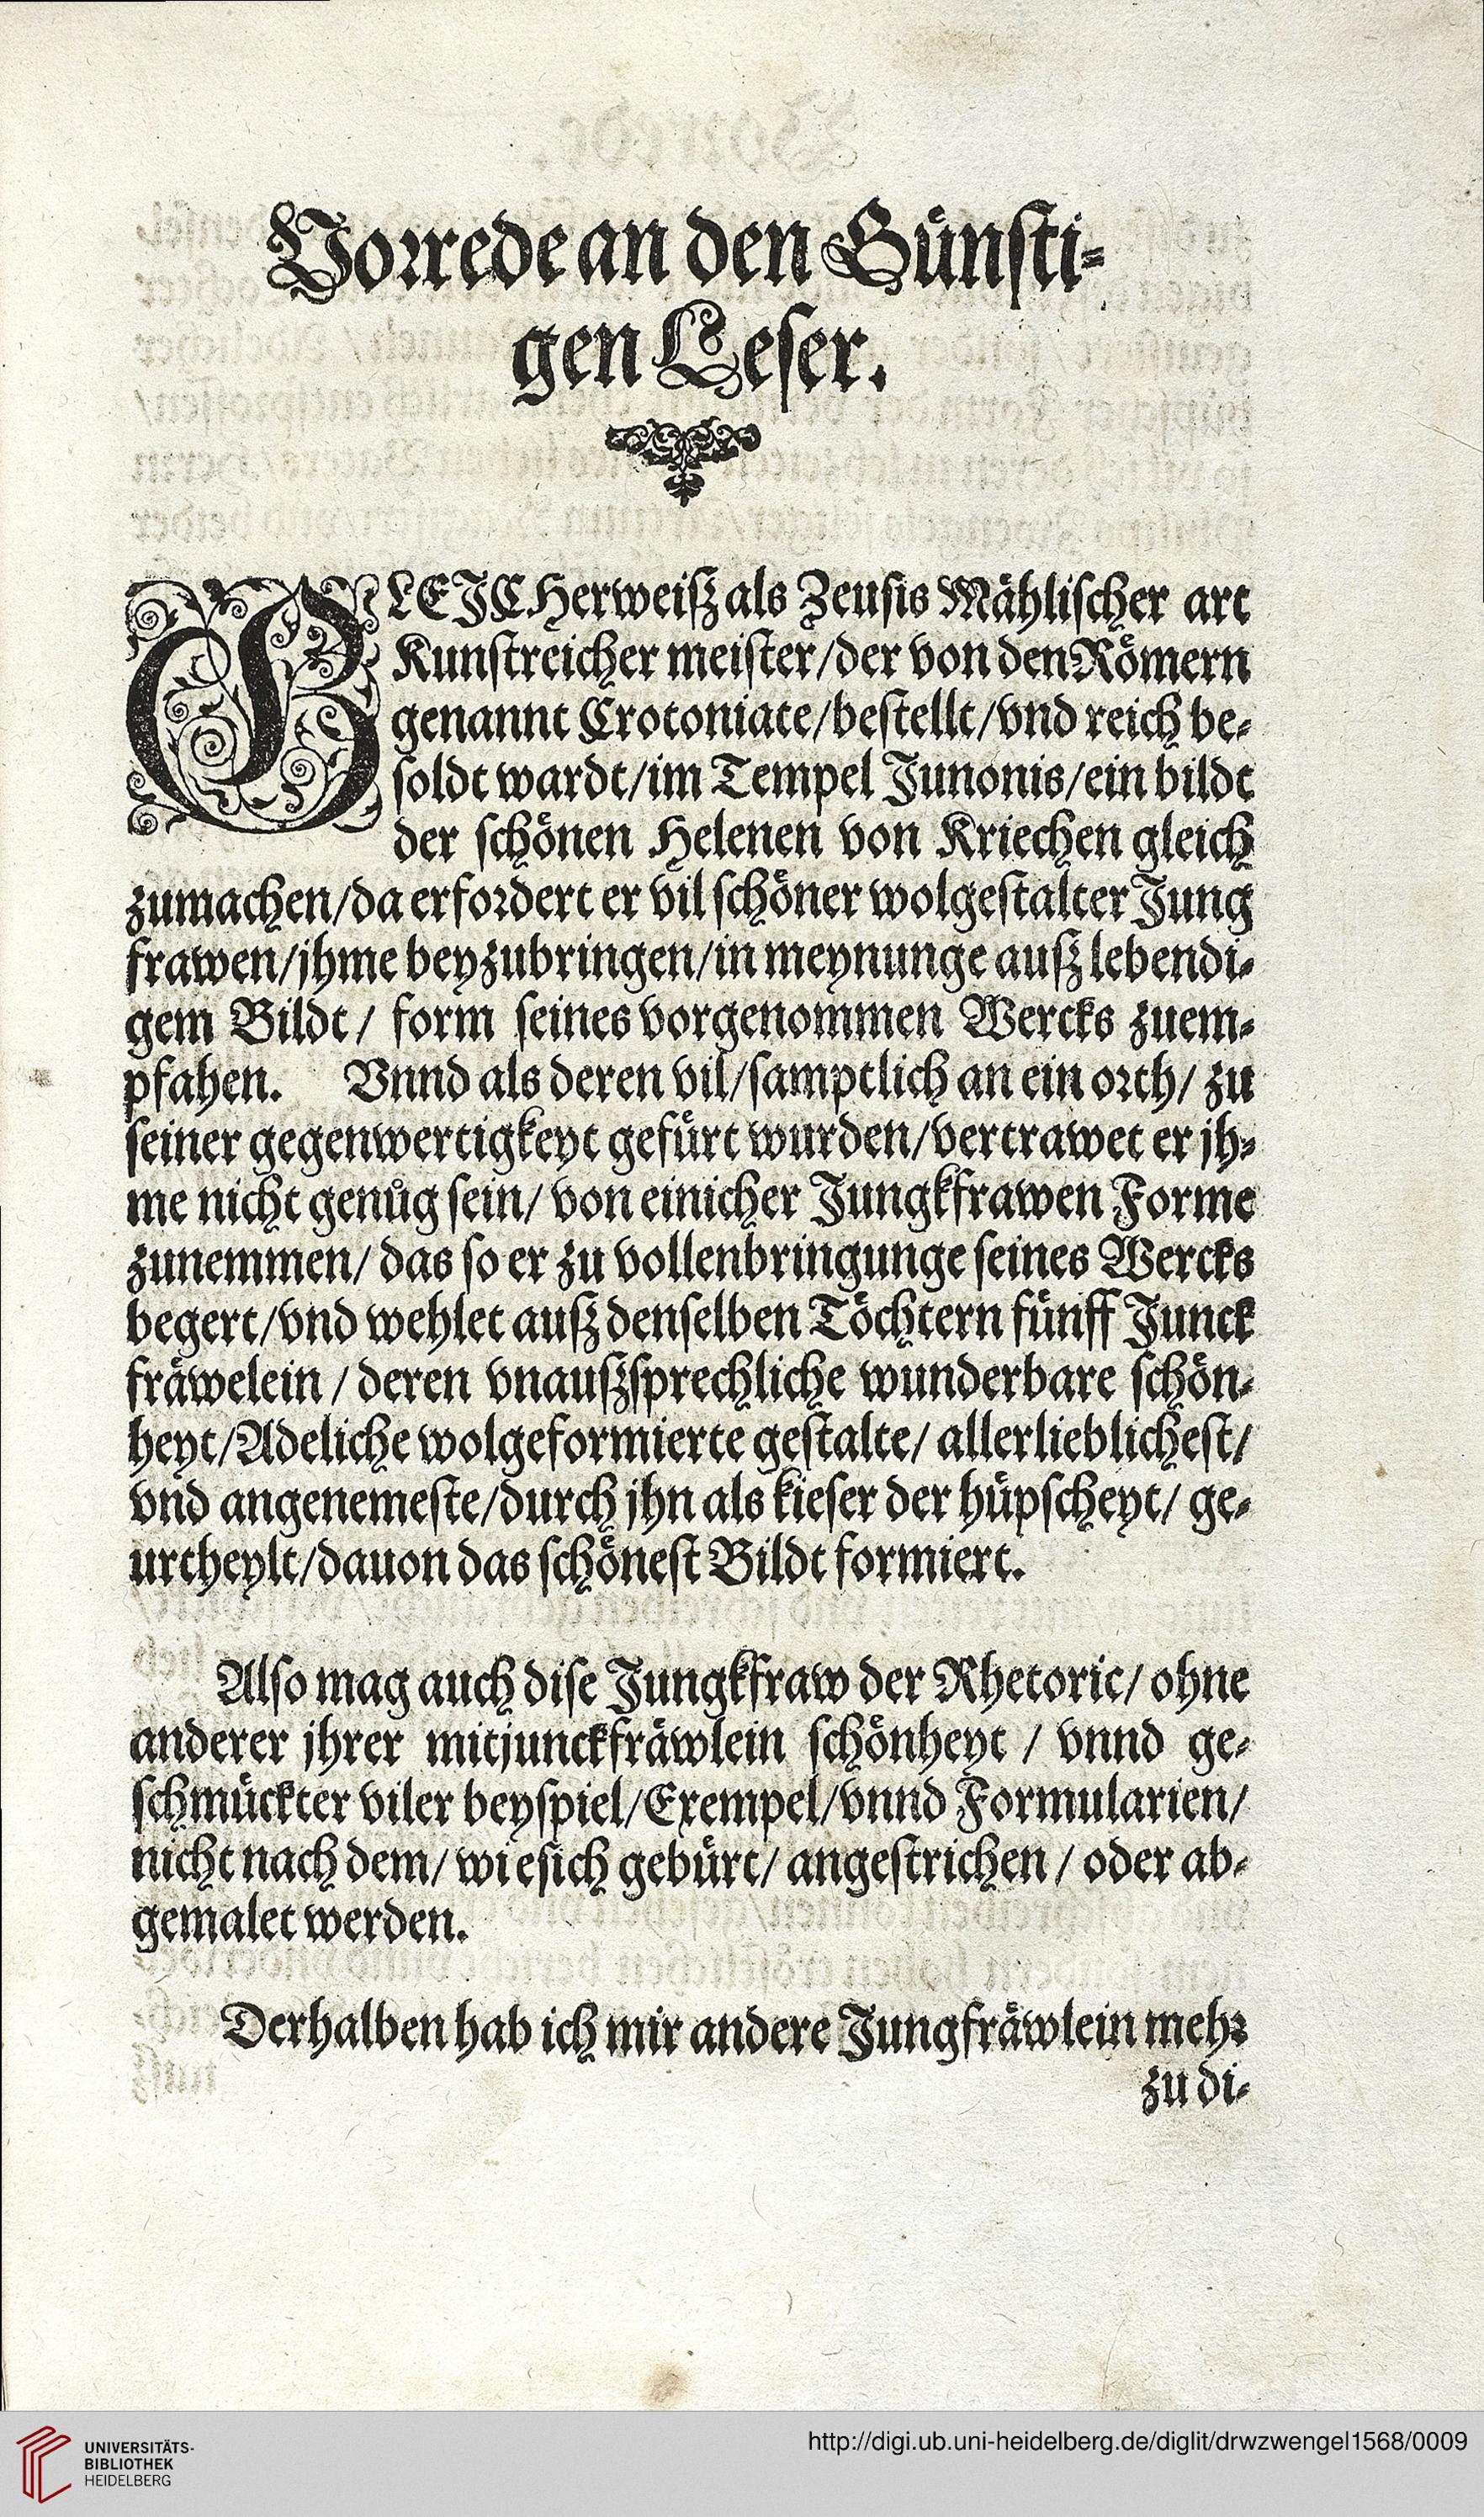 Vorrede an den Günsti-
gen Leser.
GLEJCHerweiß als Zeusis Mählischer art
Kunstreicher meister/der von den Römern
genannt Crotoniate/bestellt/vnd reich be-
soldt wardt/im Tempel Junonis/ein bildt
der schönen Helenen von Kriechen gleich
zumachen/da erfordert er vil schöner wolgestalter Jung
frawen/jhme beyzubringen/in meynunge auß lebendi-
gem Bildt/ form seines vorgenommen Wercks zuem-
pfahen. Vnnd als deren vil/samptlich an ein orth/ zu
seiner gegenwertigkeyt gefürt wurden/vertrawet er jh-
me nicht genůg sein/ von einicher Jungkfrawen Forme
zunemmen/ das so er zu vollenbringunge seines Wercks
begert/vnd wehlet auß denselben Töchtern fünff Junck
fräwelein / deren vnaußsprechliche wunderbare schön-
heyt/Adeliche wolgeformierte gestalte/ allerlieblichest/
vnd angenemeste/durch jhn als kieser der hüpscheyt/ ge-
urtheylt/dauon das schönest Bildt formiert.
Also mag auch dise Jungkfraw der Rhetoric/ ohne
anderer jhrer mitjunckfräwlein schönheyt / vnnd ge-
schmückter viler beyspiel/Exempel/vnnd Formularien/
nicht nach dem/ wie sich gebürt/ angestrichen / oder ab-
gemalet werden.
Derhalben hab ich mir andere Jungfräwlein mehr
zu di-
UNIVERSITÄTS-
BIBLIOTHEK
HEIDELBERG
http://digi.ub.uni-heidelberg.de/diglit/drwzwengel1568/0009